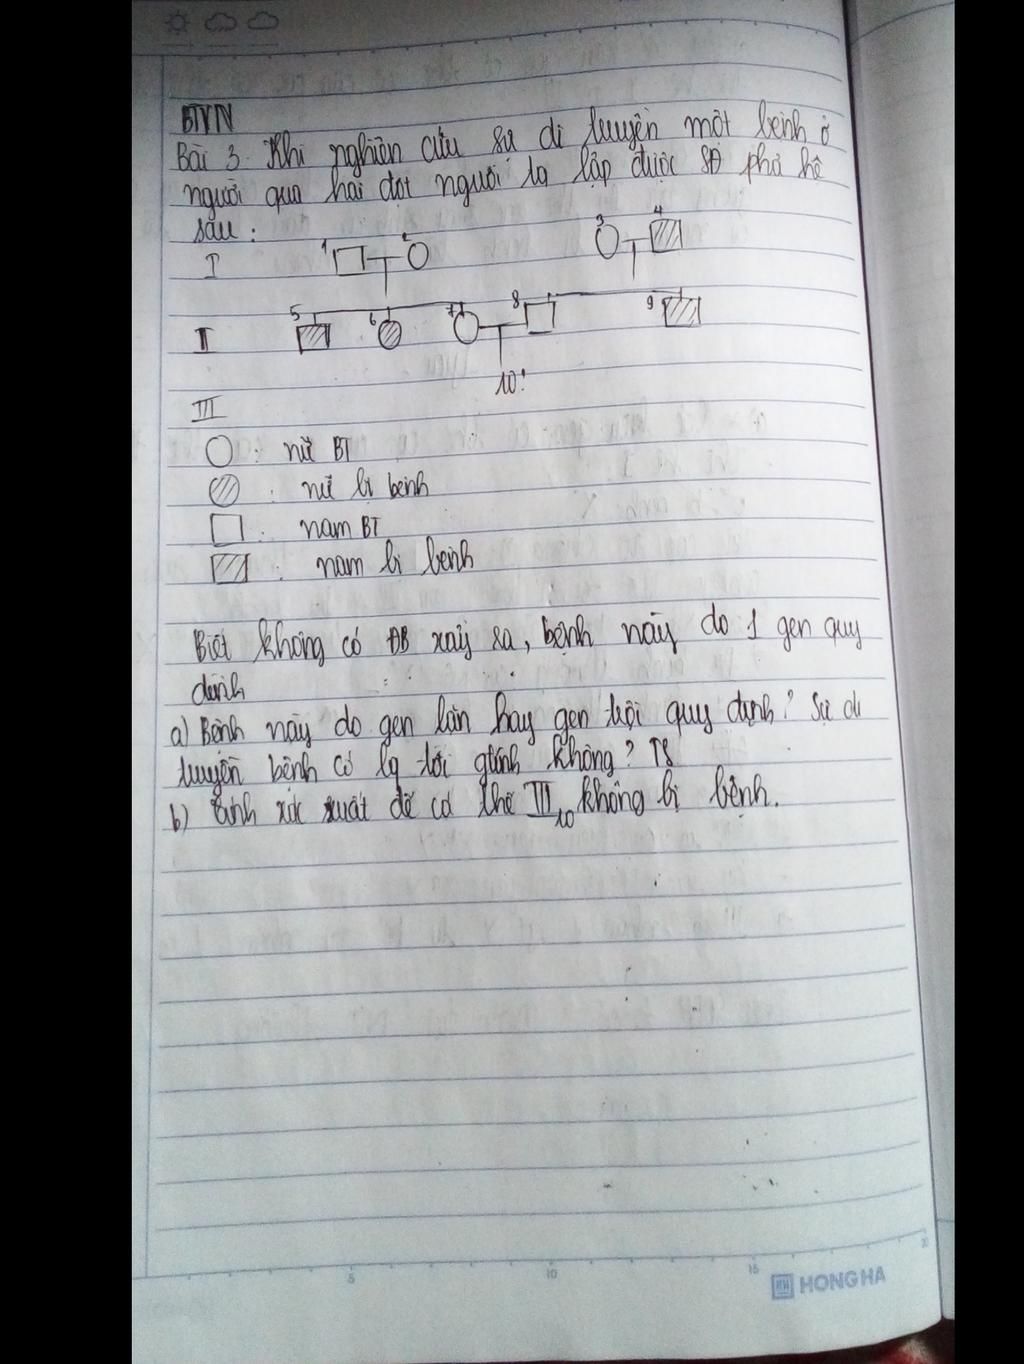 BTVN
Bài 3. Khi nghiên cứu sự di truyền một bệnh ở
người qua hai đợt người ta lập được SĐ phả hệ
sau :
1 2 3 4
I
5 6 7 8 9
II
10?
III
: nữ BT
: nữ bị bệnh
: nam BT
: nam bị bệnh
Biết không có ĐB xảy ra, bệnh này do 1 gen quy
định
a) Bệnh này do gen lặn hay gen trội quy định? Sự di
truyền bệnh có lq tới gtính không? TS
b) tính xác xuất để cá thể III10 không bị bệnh.
5 10 15 20
HONG HA